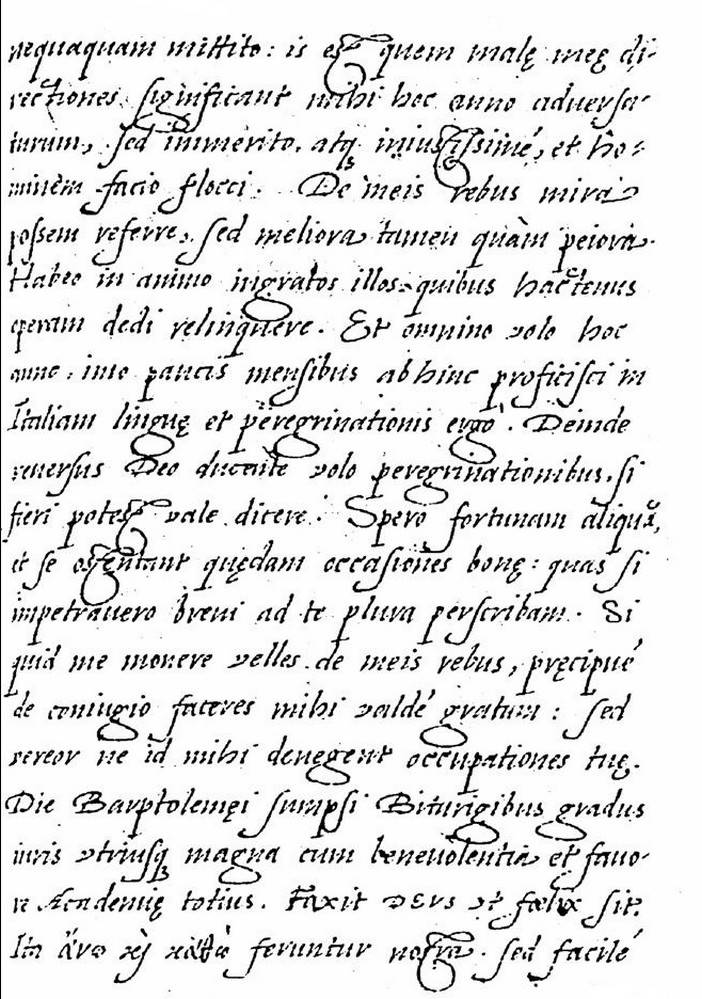 nequaquam mittito: is est quem malę meę di-
rectiones significant mihi hoc anno adversa-
turum, sed immerito, atq iniustissimé, et ho-
minem facio flocci. De meis rebus mira
possem referre, sed meliora tamen quàm peiora.
Habeo in animo ingratos illos quibus hactenus
operam dedi relinquere. Et omnino volo hoc
anno, imo paucis mensibus abhinc proficisci in
Italiam linguę et peregrinationis ergò. Deinde
reversus Deo ducente volo peregrinationibus, si
fieri potest vale dicere. Spero fortunam aliquã,
et se ostentant quędam occasiones bonę: quas si
impetravero brevi ad te plura perscribam. Si
quid me monere velles de meis rebus, pręcipué
de coniugio faceres mihi valdé gratum: sed
vereor ne id mihi denegent occupationes tuę.
Die Barptolemęi sumpsi Biturigibus gradus
iuris utriusq magna cum benevolentia et favo-
re Academię totius. Faxit DEVS ut fœlix sit.
Ita ἄνω καὶ κάτω feruntur nostra. sed facilé